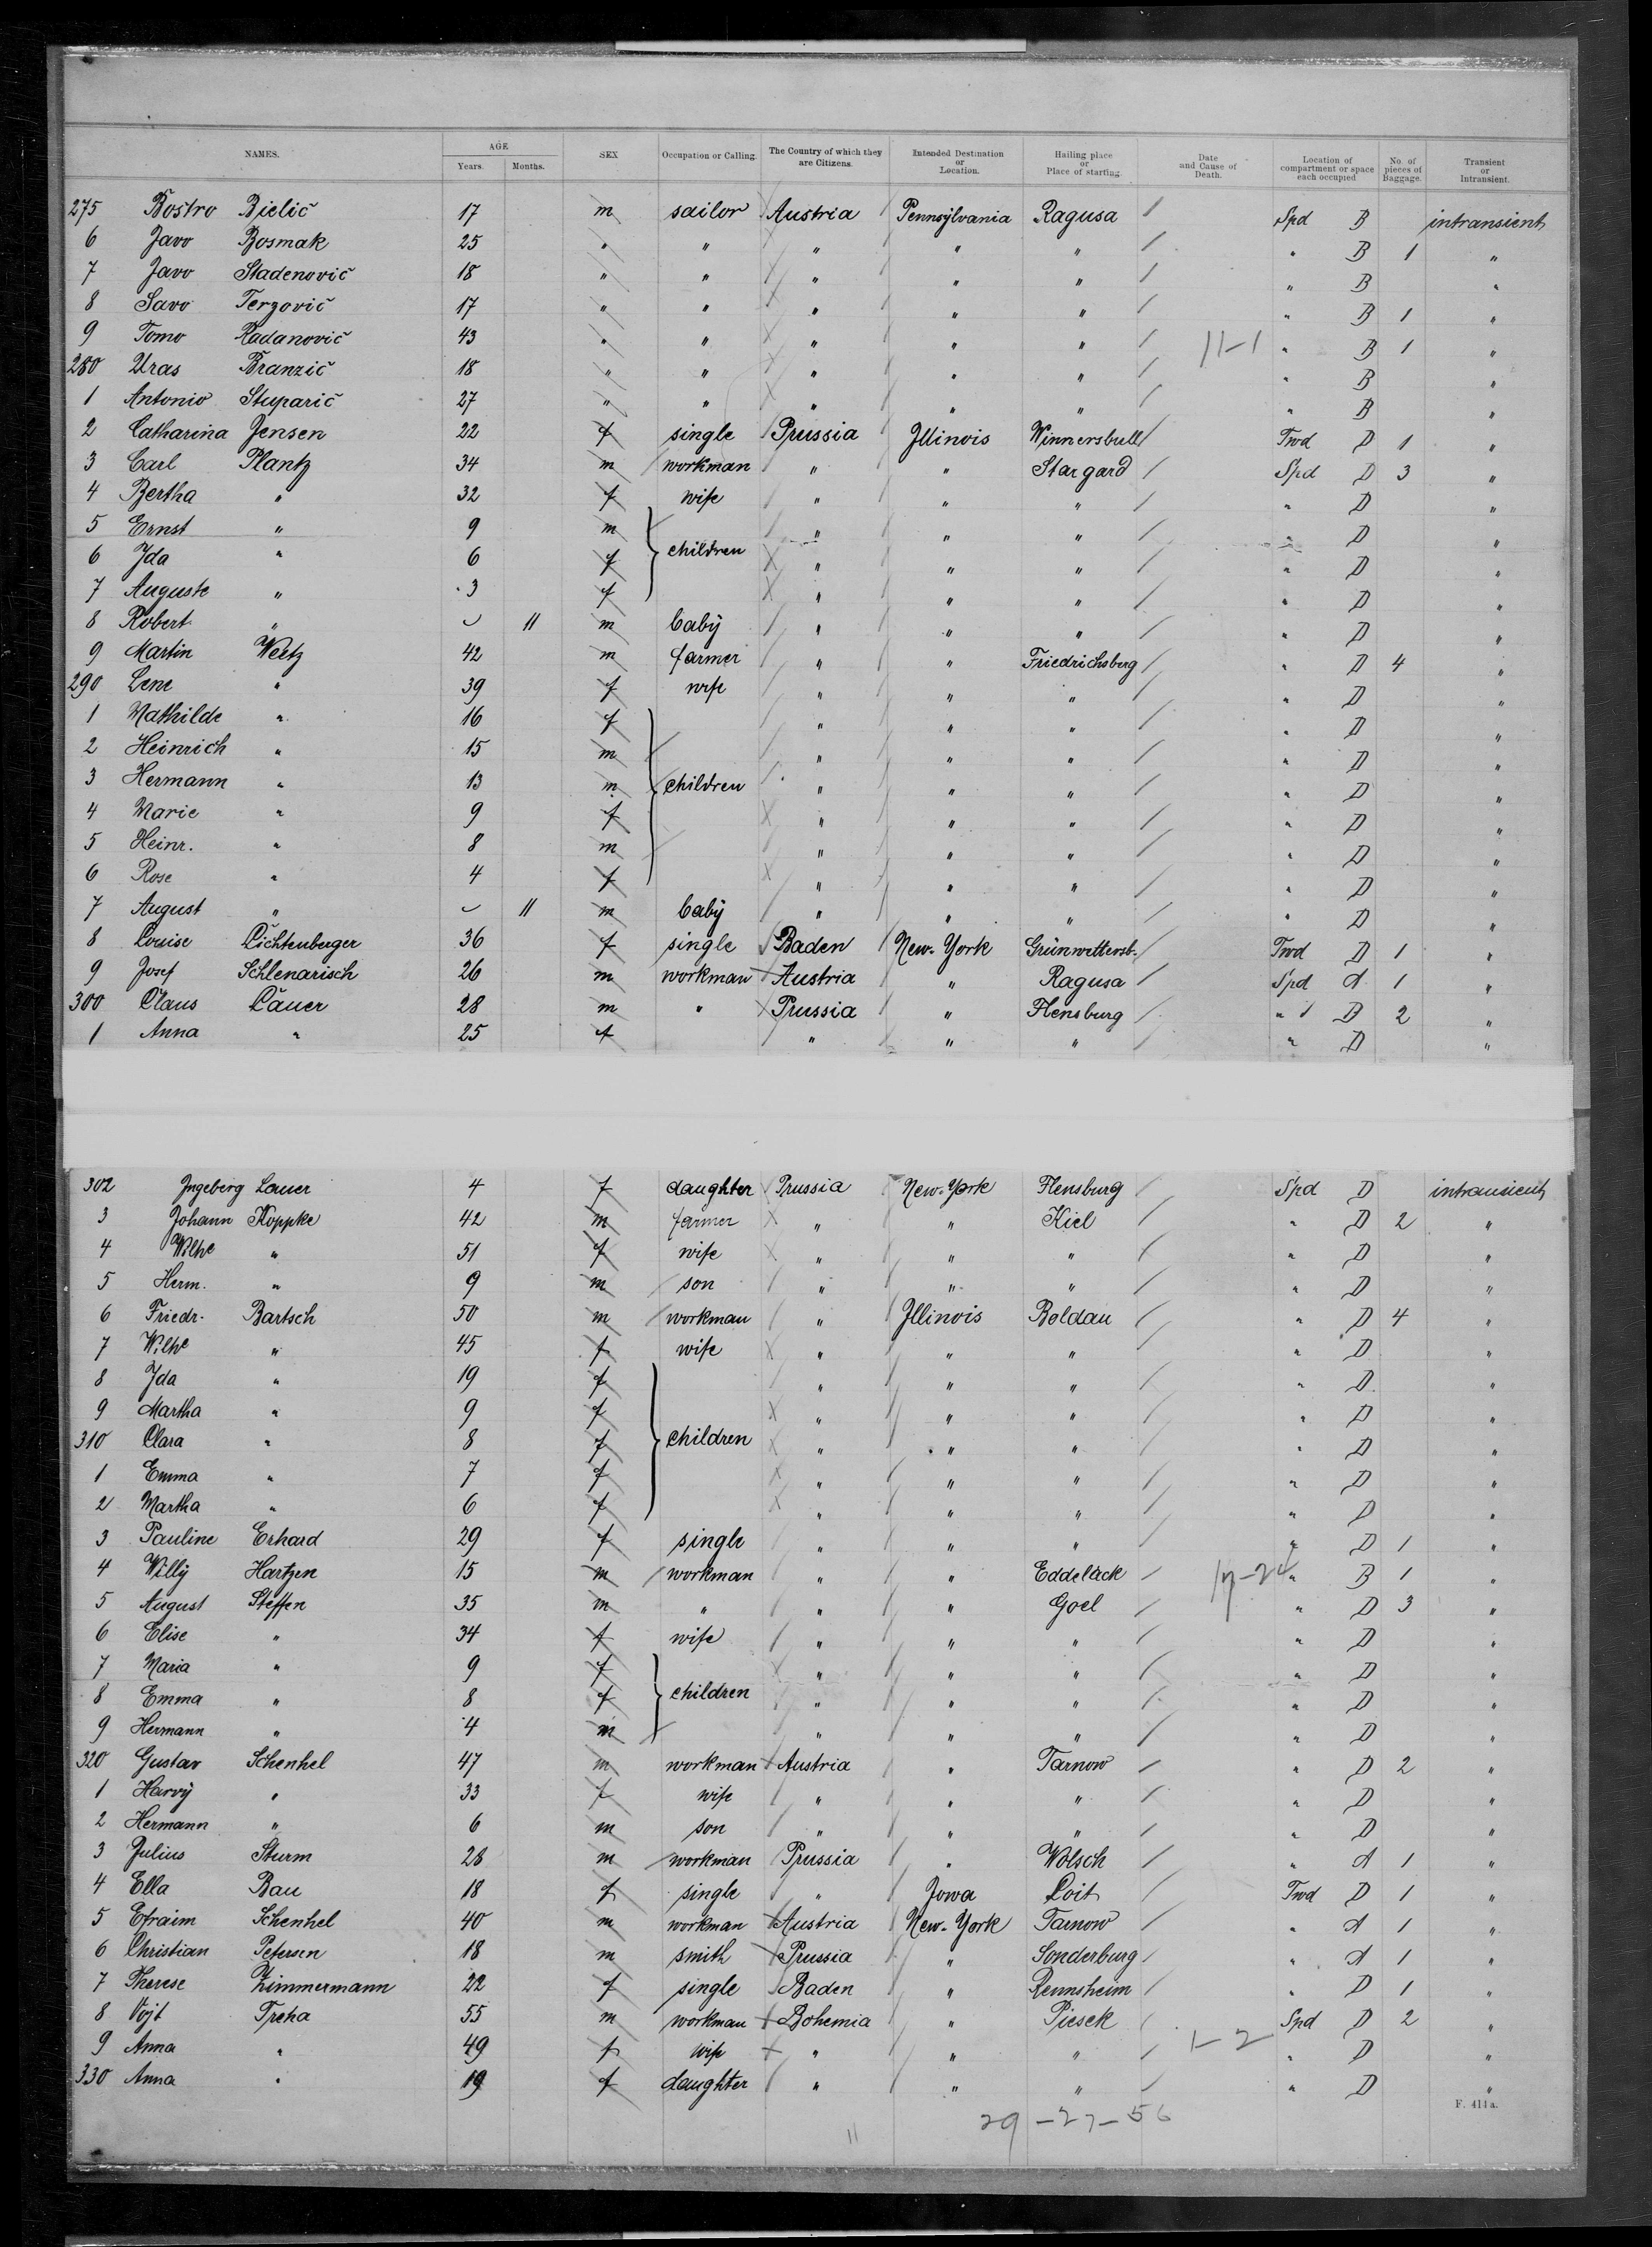 NAMES. AGE Years. Months. SEX Occupation or Calling. The Country of which they are Citizens. Intended Destination or Location. Hailing place or Place of starting. Date and Cause of Death. Location of compartment or space each occupied No. of pieces of Baggage. Transient or Intransient.
275 Bostro Bielič 17 m sailor Austria Pennsylvania Ragusa Spd B intransient
6 Javo Bosmak 25 " " " " " " B 1 "
7 Javo Sladenovič 18 " " " " " " B "
8 Savo Terzovič 17 " " " " " " B 1 "
9 Tomo Radanovič 43 " " " " " 11-1 " B 1 "
280 Uras Branzič 18 " " " " " " B "
1 Antonio Stuparič 27 " " " " " " B "
2 Catharina Jensen 22 f single Prussia Illinois Winnersbull Twd D 1 "
3 Carl Plantz 34 m workman " " Stargard Spd D 3 "
4 Bertha " 32 f wife " " " " D "
5 Ernst " 9 m " " " " D "
6 Ida " 6 f children " " " " D "
7 Auguste " 3 f " " " " D "
8 Robert " 11 m baby " " " " D "
9 Martin Weetz 42 m farmer " " Friedrichsberg " D 4 "
290 Lene " 39 f wife " " " " D "
1 Mathilde " 16 f " " " " D "
2 Heinrich " 15 m " " " " D "
3 Hermann " 13 m children " " " " D "
4 Marie " 9 f " " " " D "
5 Heinr. " 8 m " " " " D "
6 Rose " 4 f " " " " D "
7 August " 11 m baby " " " " D "
8 Louise Lichtenberger 36 f single Baden New-York Grünwettersb. Twd D 1 "
9 Josef Schlenarisch 26 m workman Austria " Ragusa Spd A 1 "
300 Claus Lauer 28 m " Prussia " Flensburg " D 2 "
1 Anna " 25 f " " " " D "
302 Ingeberg Lauer 4 f daughter Prussia New-York Flensburg Spd D intransient
3 Johann Koppke 42 m farmer " " Kiel " D 2 "
4 Wilhe " 51 f wife " " " " D "
5 Herm. " 9 m son " " " " D "
6 Friedr. Bartsch 50 m workman " Illinois Boldau " D 4 "
7 Wilhe " 45 f wife " " " " D "
8 Ida " 19 f " " " " D "
9 Martha " 9 f " " " " D "
310 Clara " 8 f children " " " " D "
1 Emma " 7 f " " " " D "
2 Martha " 6 f " " " " D "
3 Pauline Erhard 29 f single " " " " D 1 "
4 Willy Hartzen 15 m workman " " Eddelack " B 1 "
5 August Steffen 35 m " " " Goel " D 3 "
6 Elise " 34 f wife " " " " D "
7 Maria " 9 f " " " " D "
8 Emma " 8 f children " " " " D "
9 Hermann " 4 m " " " " D "
320 Gustav Schenhel 47 m workman Austria " Tarnow " D 2 "
1 Harvy " 33 f wife " " " " D "
2 Hermann " 6 m son " " " " D "
3 Julius Sturm 28 m workman Prussia " Wolsch " A 1 "
4 Ella Bau 18 f single " Jowa Loit Twd D 1 "
5 Efraim Schenhel 40 m workman Austria New-York Tarnow " A 1 "
6 Christian Petersen 18 m smith Prussia " Sonderburg " A 1 "
7 Therese Zimmermann 22 f single Baden " Rennsheim " D 1 "
8 Vojt Treha 55 m workman Bohemia " Piesek Spd D 2 "
9 Anna " 49 f wife " " " 1-2 " D "
330 Anna " 19 f daughter " " " " D "
F. 411a.
29-27-56